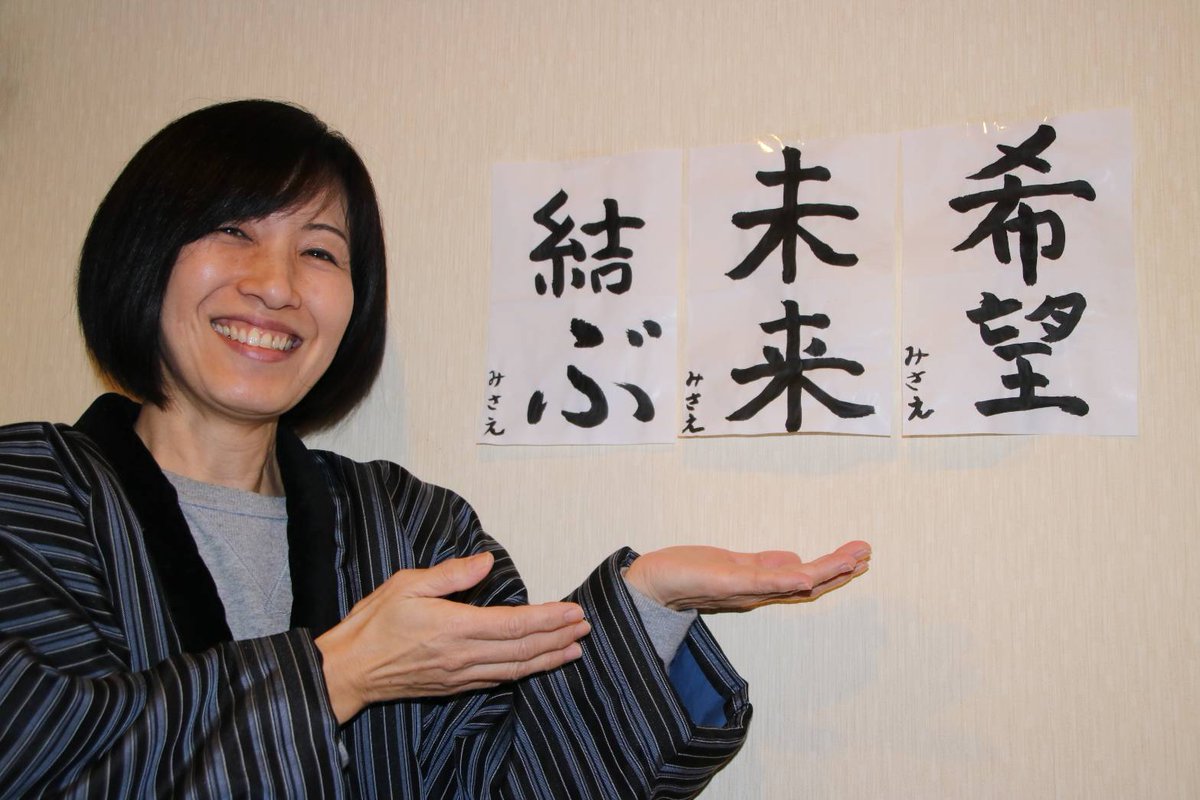 希望
みさえ
未来
みさえ
結ぶ
みさえ